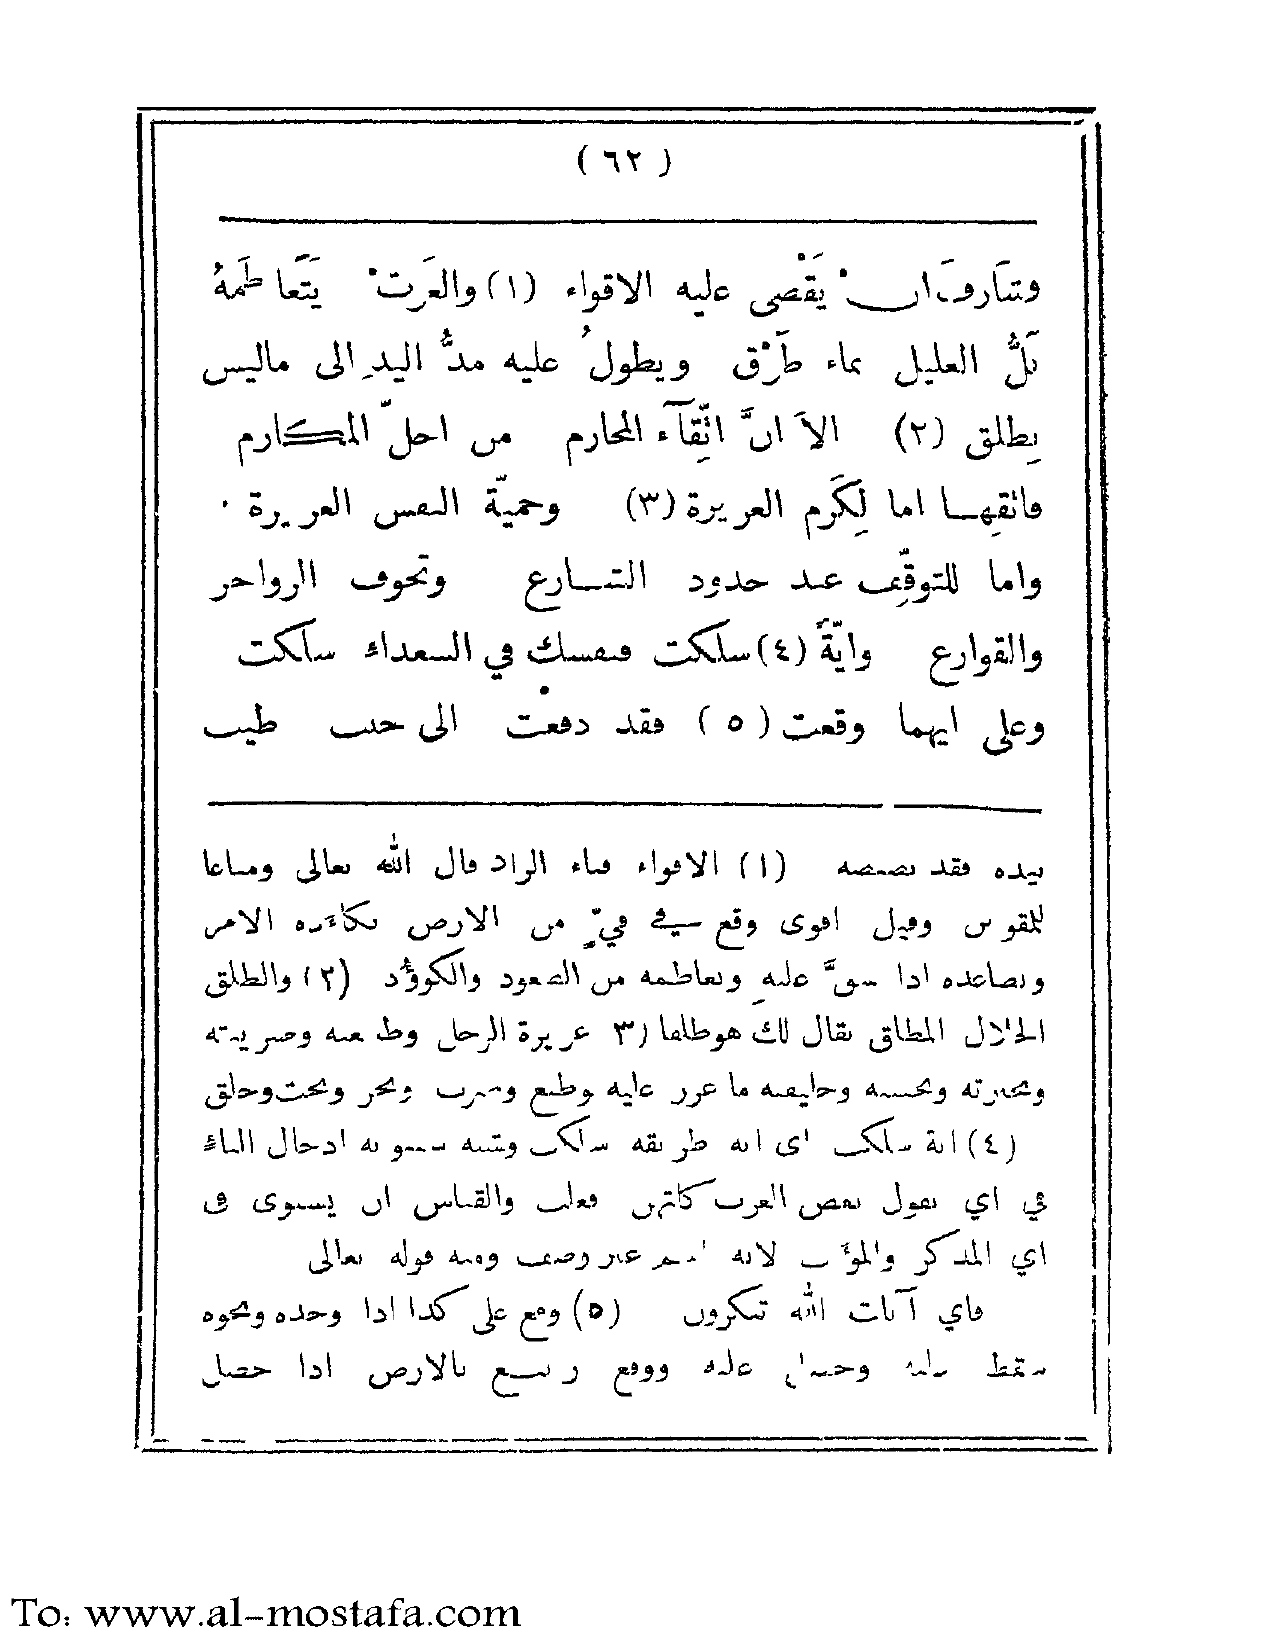 ( ٦٢ )
وشارف ان يقضى عليه الاقواء (١) والغَرِث يتعاظمه
بَلُّ الغليل بماء طَرْق ويطولُ عليه مدُّ اليد الى ماليس
بِطلق (٢) الا انَّ اتّقآء المحارم من اجلّ المكارم
فاتقِهـا اما لِكَرم الغريزة (٣) وحميّة النفس العزيزة ٠
واما للتوقّف عند حدود الشـارع وتخوف الزواجر
والقوارع وايّةً (٤) سلكت فنفسك في السعداء سلكت
وعلى ايهما وقعت ( ٥ ) فقد دفعت الى جنب طيب
بيده فقد نصفه (١) الاقواء فناء الزاد قال الله تعالى ومتاعا
للمقوين وقيل اقوى وقع في قيّ من الارض تكاءده الامر
وتصاعده اذا شقَّ عليه وتعاظمه من الصعود والكوؤد (٢) والطلق
الحلال المطلق يقال لك هوطلقا ٣) غريزة الرجل وطبعه وضريبته
ونحيزته وخليقته ما غرز عليه وطبع وضرب ونحز ونحت وخلق
(٤) اية سلكت اى اية طريقه سلكت وشبه سيبويه ادخال التاء
في اي بقول بعض العرب كلتهن فعلت والقياس ان يستوى فى
اي المذكر والمؤنث لانه اسم غير وصف ومنه قوله تعالى
فاي آيات الله تنكرون (٥) وقع على كذا اذا وجده ونحوه
سقط عليه عليه ووقع ربيع بالارض اذا حصل
To: www.al-mostafa.com